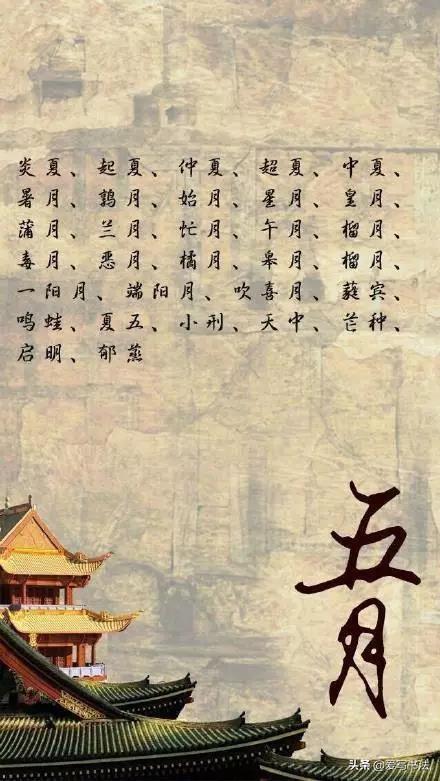 炎夏、起夏、仲夏、超夏、中夏、
暑月、鹑月、始月、星月、皇月、
蒲月、兰月、忙月、午月、榴月、
毒月、恶月、橘月、皋月、榴月、
一阳月、端阳月、吹喜月、蕤宾、
鸣蛙、夏五、小刑、天中、芒种、
启明、郁蒸
五月
头条 @爱写书法